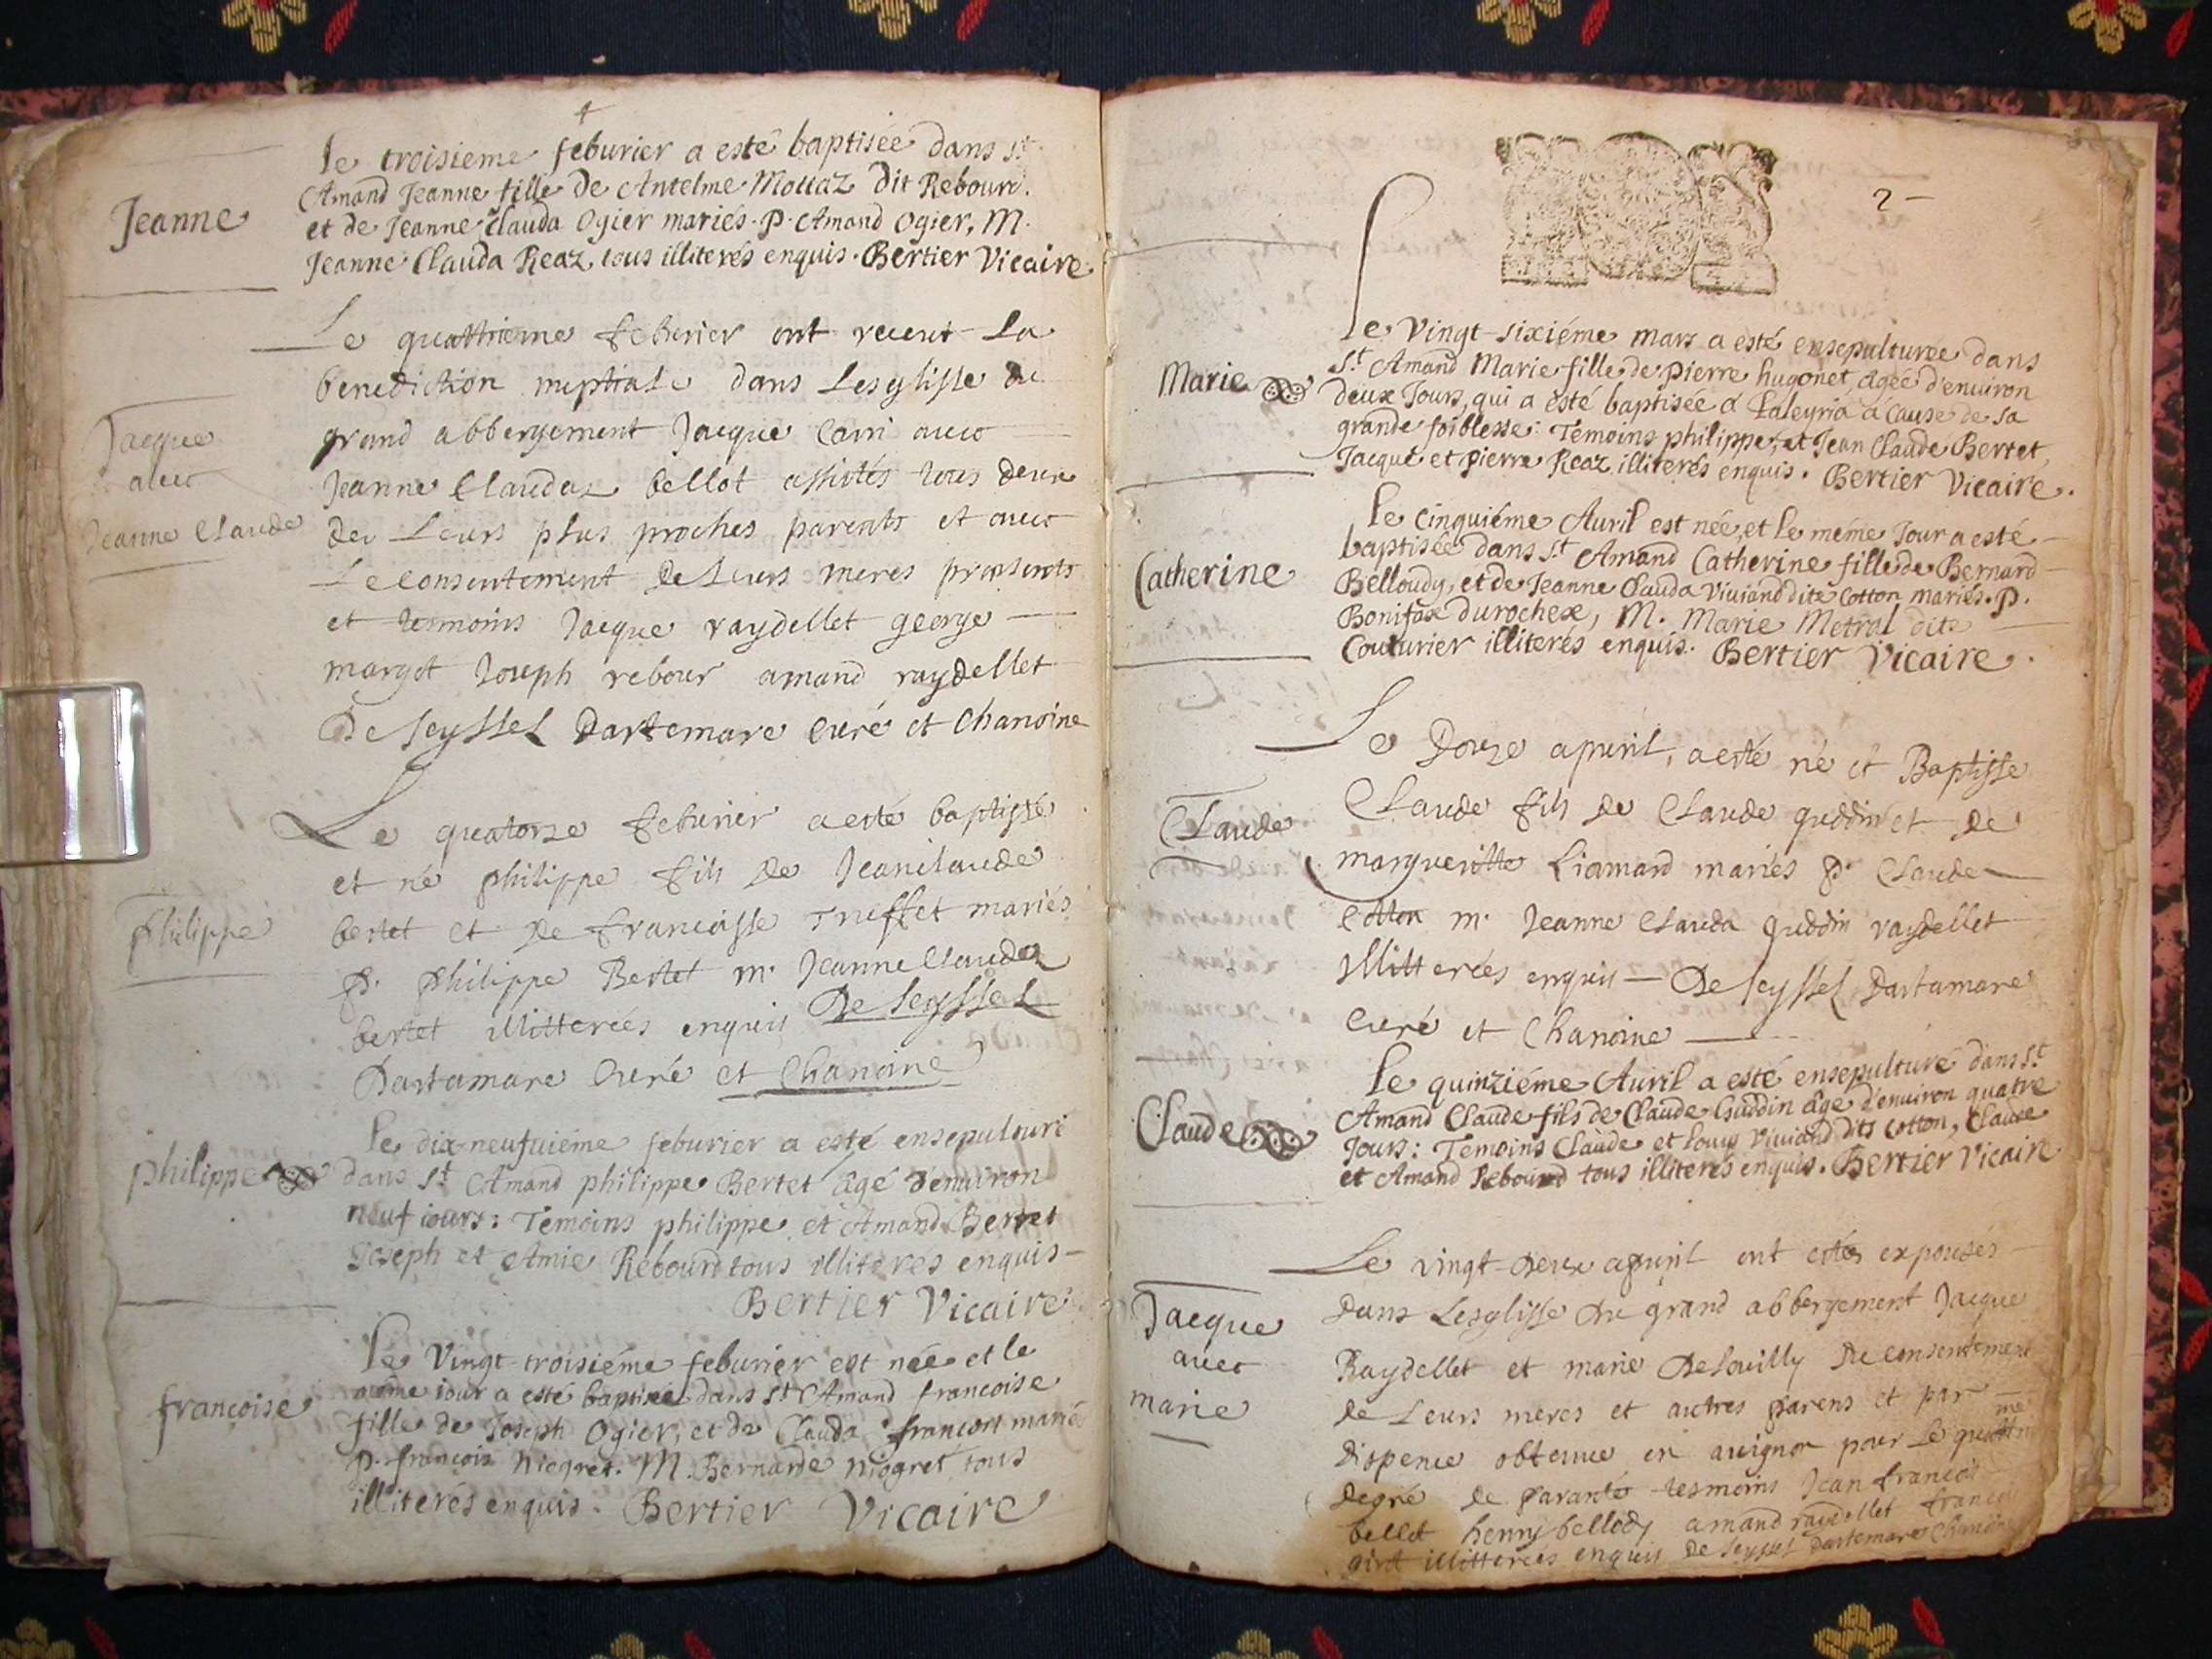 Jeanne
le troisieme feburier a esté baptisée dans st
Amand Jeanne fille de Antelme Mottaz dit Rebourd.
et de Jeanne Clauda Ogier mariés. P. Amand Ogier, M.
Jeanne Clauda Reaz, tous illiterés enquis. Bertier Vicaire
Jacque
auec
Jeanne Claude
Le quattrieme feburier ont receut La
benediction nuptiale dans Lesglisse du
grand abbergement Jacque Carri auec
Jeanne Claudaz bellot assistés tous deux
de Leurs plus proches parents et auec
Le consentement de Leurs meres presents
et tesmoins Jacque raydellet george
margot Joseph rebour amand raydellet
De seyssel Dartemare Curé et Chanoine
Philippe
Le quatorze feburier a esté baptissé
et né philippe fils de Jeanclaude
bertet et de francoisse Truffet mariés
P. philippe Bertet m. Jeanne Claudaz
bertet illitterées enquis De seyssel
Dartamare Curé et Chanoine
philippe
le dix-neufuiéme feburier a esté ensepulturé
dans st Amand philippe Bertet âgé d'enuiron
neuf iours: Temoins philippe, et Amand Bertet
Joseph et Amie Rebourd tous illiterés enquis -
Bertier Vicaire
françoise
le Vingt-troisiéme feburier est née et le
même iour a esté baptisée dans st Amand francoise
fille de Joseph Ogier, et de Clauda françon mariés
P. françois Niogret. M. Bernarde niogret tous
illiterés enquis. Bertier Vicaire
2 -
Marie
le Vingt-sixiéme mars a esté ensepulturée dans
st Amand Marie fille de pierre hugonet, âgée d'enuiron
deux Jours, qui a esté baptisée a Laleyria a cause de sa
grande foiblesse: Temoins philippe, et Jean Claude Bertet,
Jacque et pierre Reaz illiterés enquis. Bertier Vicaire.
Catherine
le Cinquiéme Auril est née, et le même Jour a esté
baptisée dans st Amand Catherine fille de Bernard
Belloudy, et de Jeanne Clauda Viuiand dite Cotton mariés. P.
Bonifax durochex, M. Marie Metral dite
Couturier illiterés enquis. Bertier Vicaire.
Claude
Le Douze apuril, a esté né et Baptisse
Claude fils de Claude guddin et de
margueritte Liamard mariés p. Claude
Cotton m. Jeanne Clauda guddin raydellet
illitterées enquis — De seyssel Dartamare
Curé et Chanoine
Claude
le quinziéme Auril a esté ensepulturé dans st
Amand Claude fils de Claude Guddin âgé d'enuiron quatre
Jours: Temoins Claude et Louys Viuiand dits Cotton, Claude
et Amand Rebourd tous illiterés enquis. Bertier Vicaire
Jacque
auec
marie
Le vingt-deux apuril ont estés expousés
dans Lesglisse du grand abbergement Jacque
Raydellet et marie De Louilly du consentement
de Leurs meres et autres parens et par
dispence obtenue en auignon pour Le quattrieme
degré de paranté tesmoins Jean francois
bellot henry bellody amand raydellet francois
girod illitterées enquis De seyssel Dartemare Chanoine